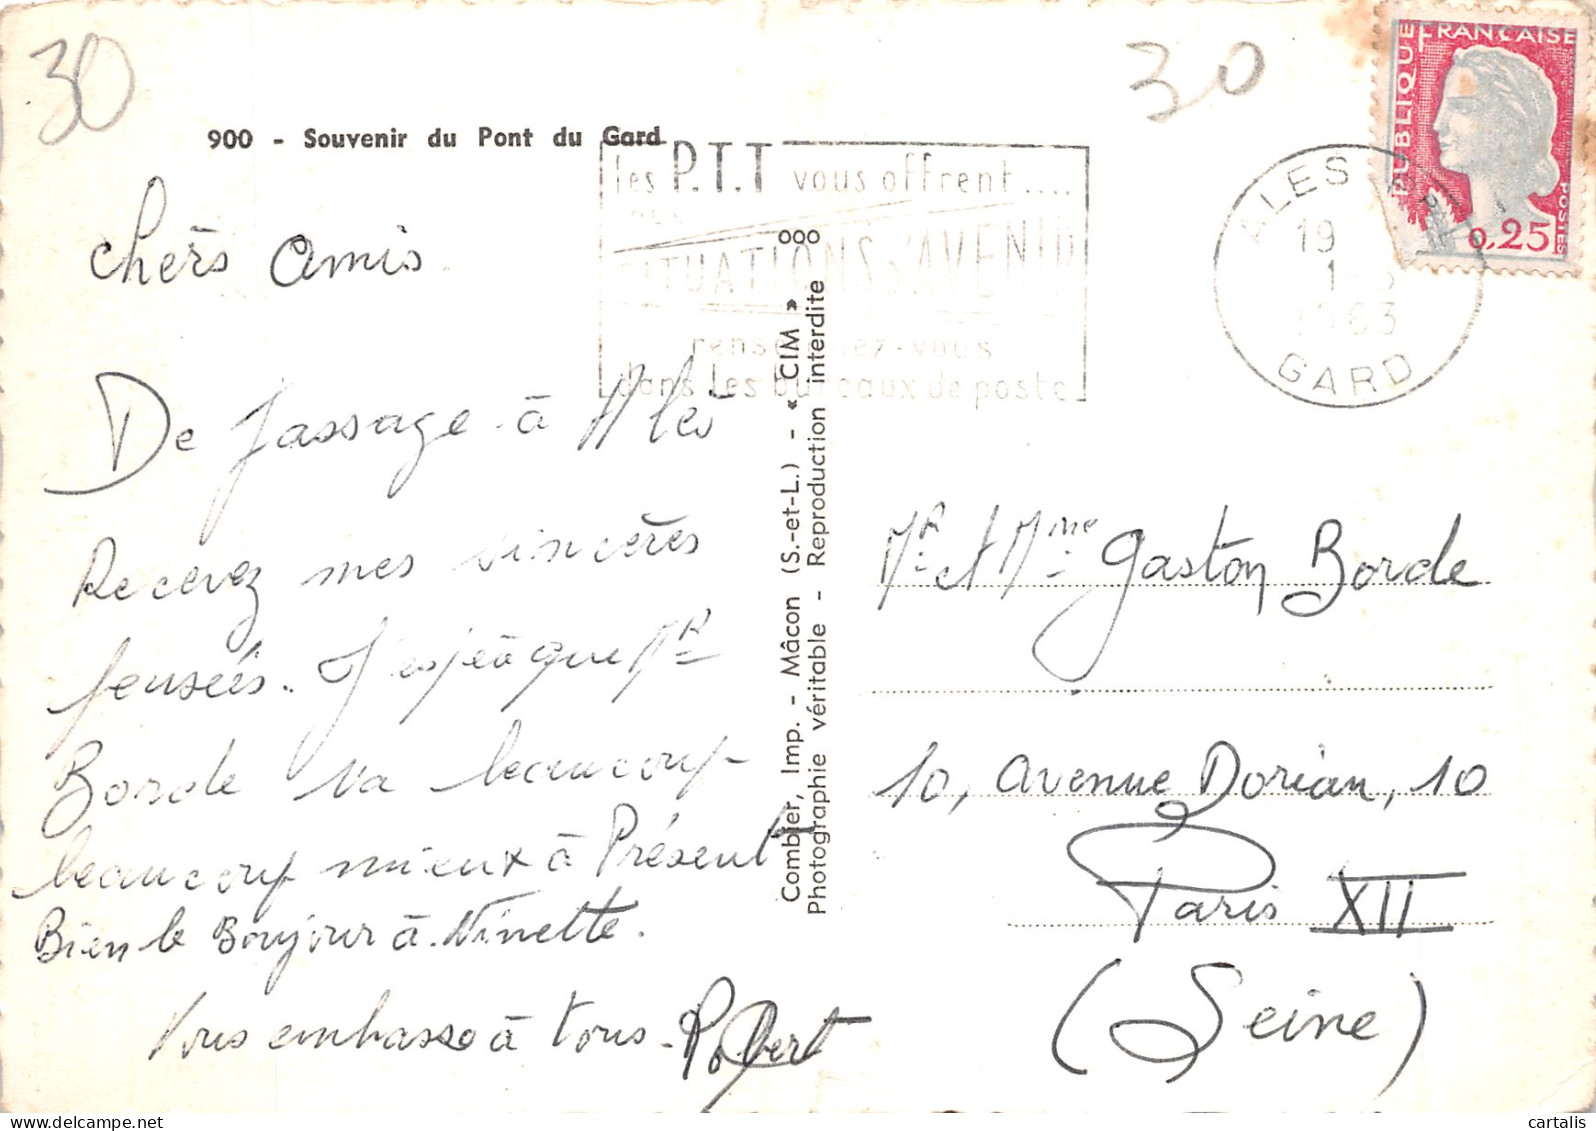 30
30
900 - Souvenir du Pont du Gard
les P.T.T vous offrent....
DES
SITUATIONS D'AVENIR
renseignez-vous
dans les bureaux de poste
ALES
19
1963
GARD
REPUBLIQUE FRANÇAISE
POSTES
0,25
chers amis.
De passage à Ales
Recevez mes sincères
pensées. J'espère que Mr
Borde va beaucoup
beaucoup mieux à Présent
Bien le Bonjour à Ninette.
Vous embrasse à tous. Robert
ooo
Combier, Imp. - Mâcon (S.-et-L.) - « CIM »
Photographie véritable - Reproduction interdite
Mr et Mme Gaston Borde
10, avenue Dorian, 10
Paris XII
(Seine)
cartalis
www.delcampe.net